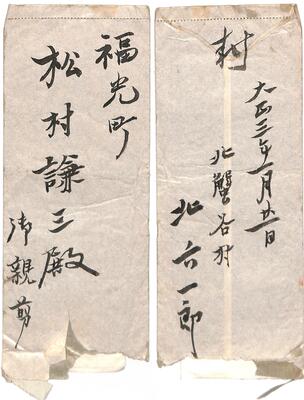 福光町
松村謙三殿
御親剪
封
大正三年一月廿一日
北蟹谷村
北六一郎